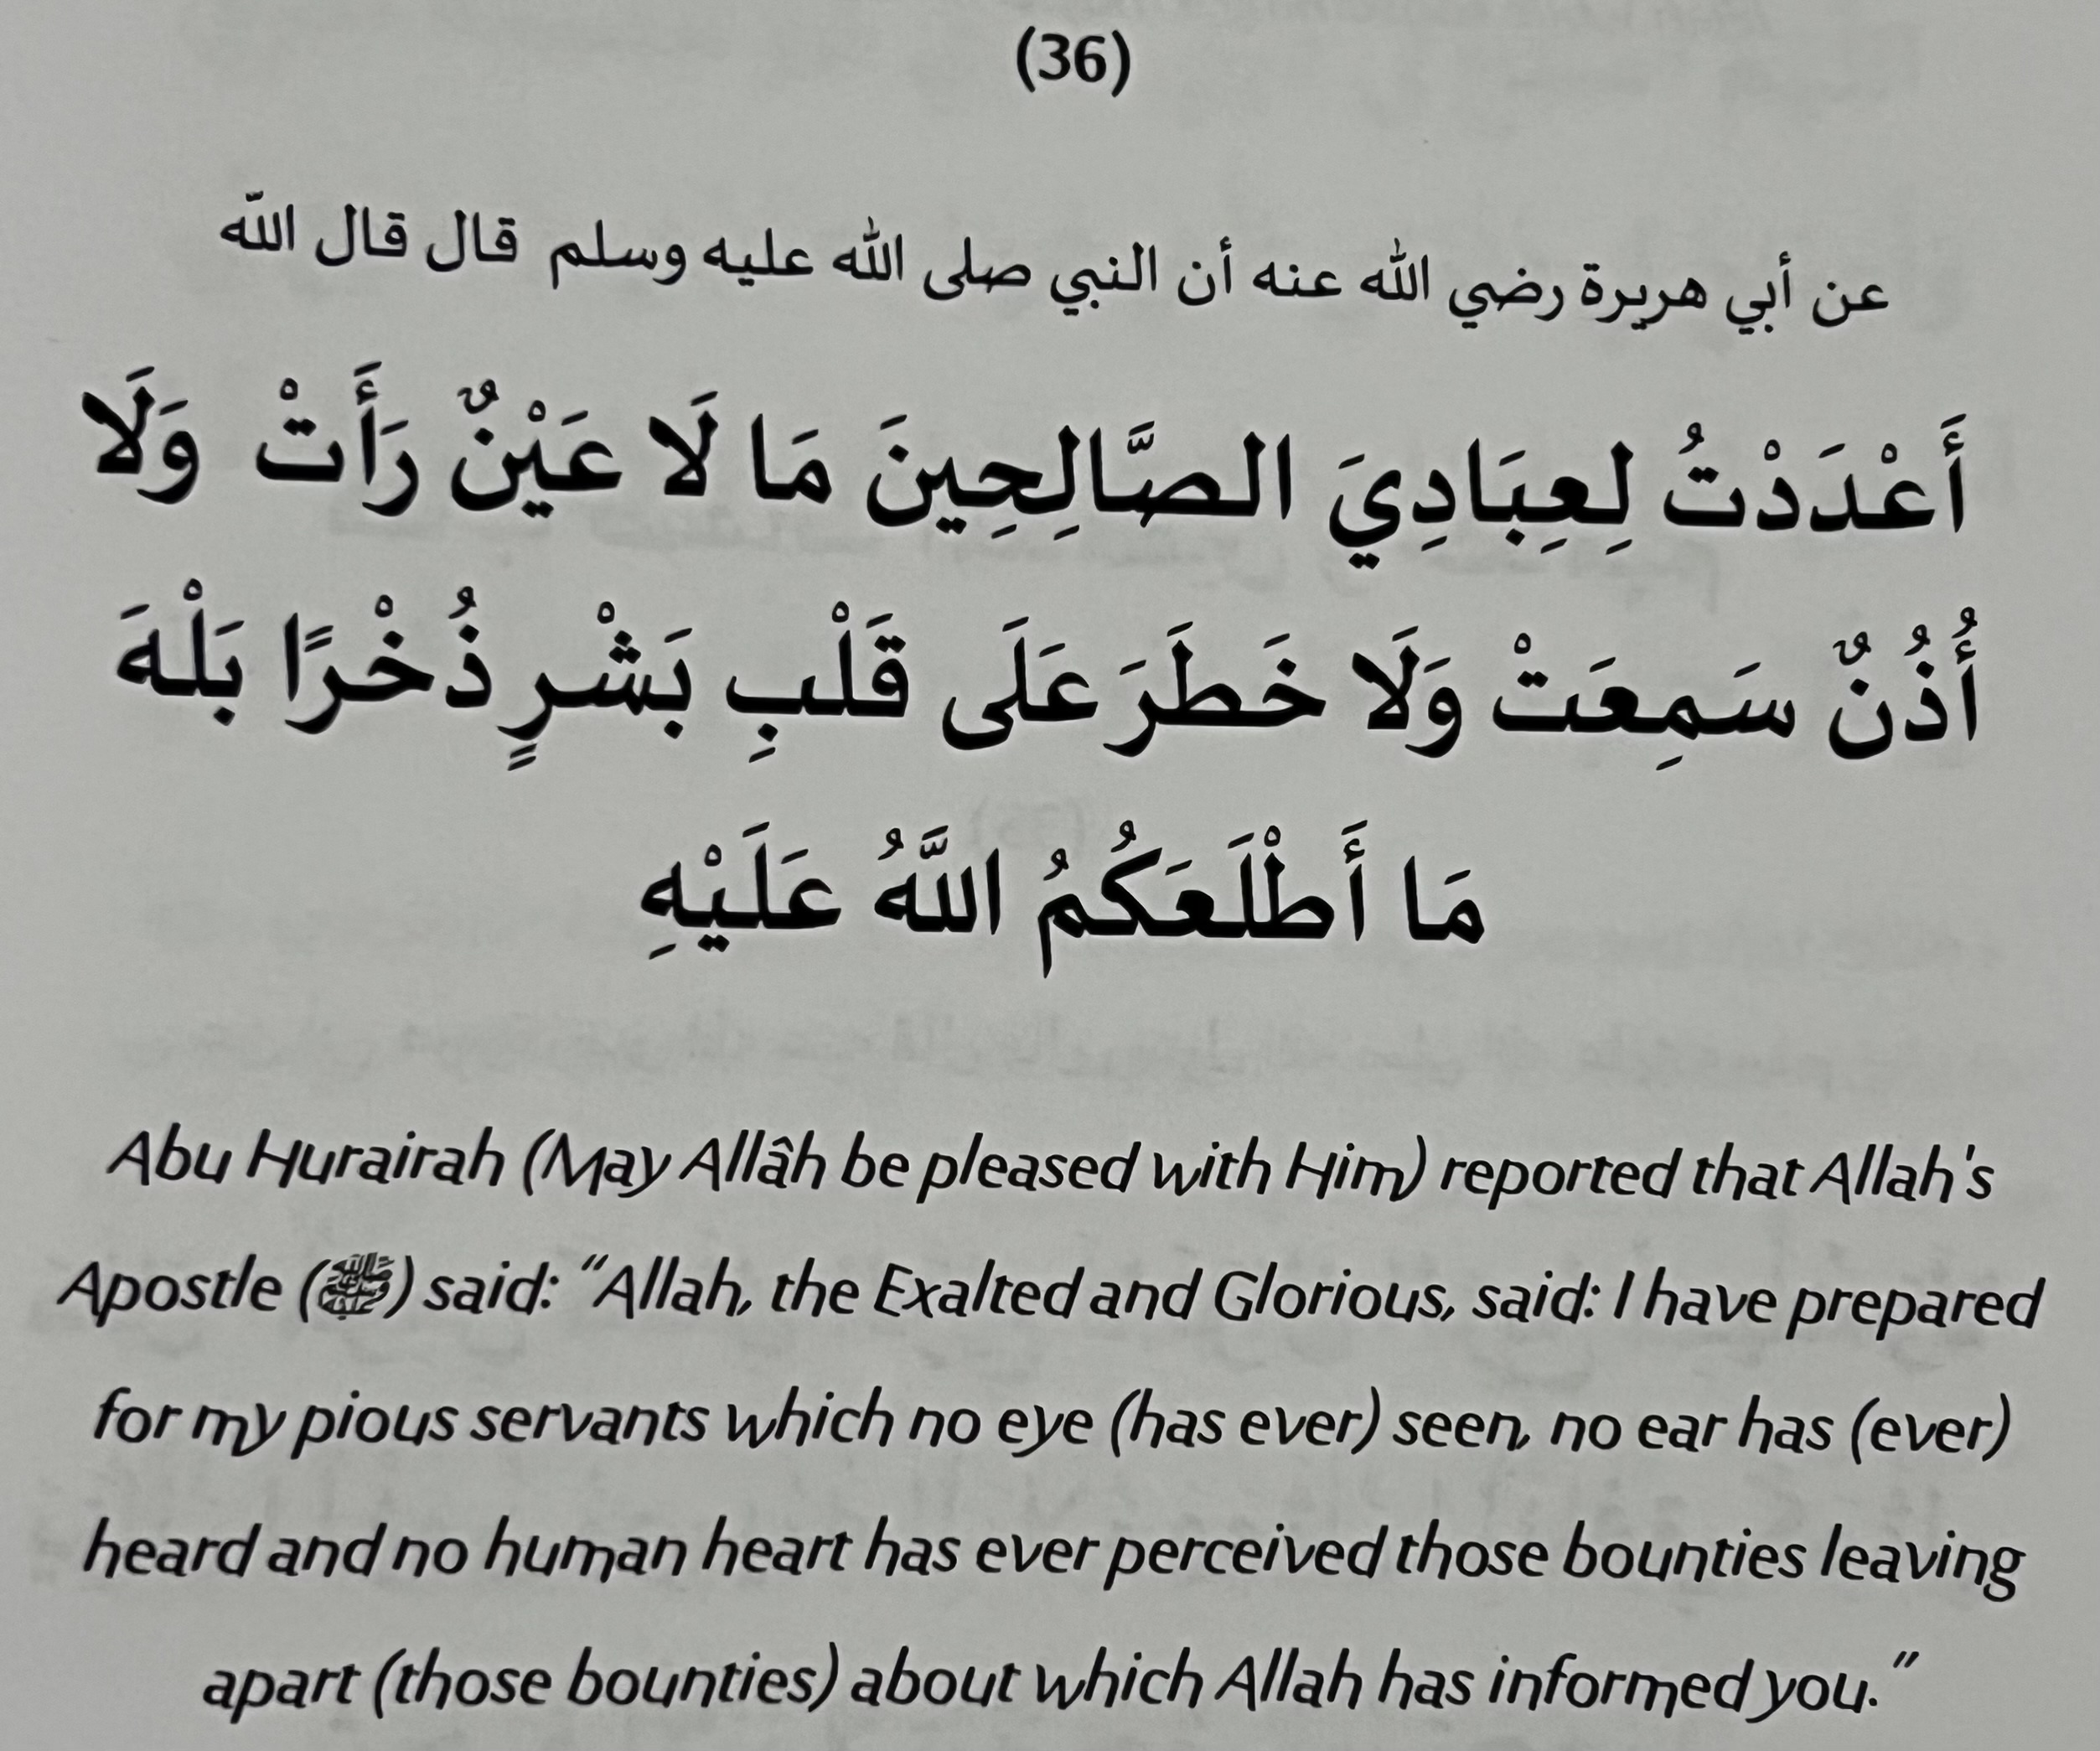 (36)
عن أبي هريرة رضي الله عنه أن النبي صلى الله عليه وسلم قال قال الله
أَعْدَدْتُ لِعِبَادِيَ الصَّالِحِينَ مَا لَا عَيْنٌ رَأَتْ وَلَا
أُذُنٌ سَمِعَتْ وَلَا خَطَرَ عَلَى قَلْبِ بَشْرٍ ذُخْرًا بَلْهَ
مَا أَطْلَعَكُمُ اللَّهُ عَلَيْهِ
Abu Hurairah (May Allâh be pleased with Him) reported that Allah's
Apostle (ﷺ) said: "Allah, the Exalted and Glorious, said: I have prepared
for my pious servants which no eye (has ever) seen, no ear has (ever)
heard and no human heart has ever perceived those bounties leaving
apart (those bounties) about which Allah has informed you."